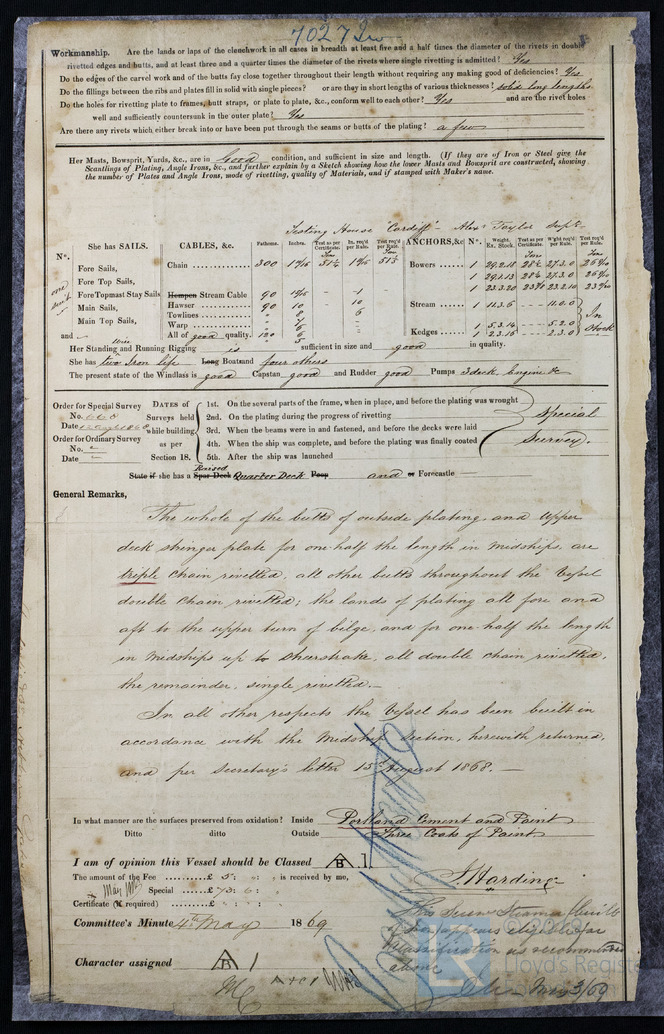 70272
Workmanship. Are the lands or laps of the clenchwork in all cases in breadth at least five and a half times the diameter of the rivets in double
rivetted edges and butts, and at least three and a quarter times the diameter of the rivets where single rivetting is admitted? Yes
Do the edges of the carvel work and of the butts fay close together throughout their length without requiring any making good of deficiencies? Yes
Do the fillings between the ribs and plates fill in solid with single pieces? or are they in short lengths of various thicknesses? solid long lengths
Do the holes for rivetting plate to frames, butt straps, or plate to plate, &c., conform well to each other? Yes and are the rivet holes
well and sufficiently countersunk in the outer plate? Yes
Are there any rivets which either break into or have been put through the seams or butts of the plating? a few
Her Masts, Bowsprit, Yards, &c., are in Good condition, and sufficient in size and length. (If they are of Iron or Steel give the
Scantlings of Plating, Angle Irons, &c., and further explain by a Sketch showing how the lower Masts and Bowsprit are constructed, showing
the number of Plates and Angle Irons, mode of rivetting, quality of Materials, and if stamped with Maker's name.
Testing House "Cardiff" - Alex Taylor Supt.
N°. She has SAILS. CABLES, &c. Fathoms. Inches. Test as per Certificate. In. req'd per Rule. Test req'd per Rule. ANCHORS, &c N°. Weight. Ex. Stock. Test as per Certificate. W'ght req'd per Rule. Test req'd per Rule.
Fore Sails, Chain 300 Bowers 1 29.2.18 27.3.0
Fore Top Sails, 1 29.1.13 27.3.0
Fore Topmast Stay Sails Hempen Stream Cable 90 1 1 23.3.20 23.2.10
Main Sails, Hawser 90 10 10 Stream 1 11.3.6 11.0.0
Main Top Sails, Towlines 8 6 In
Warp 1 5.3.14 5.2.0 Stock
and All of good quality. 120 Kedges 1 2.3.15 2.3.0
Her Standing and Running Rigging is sufficient in size and good in quality.
She has two Iron life Long Boat and four others
The present state of the Windlass is good Capstan good and Rudder good Pumps 3 deck Engine &c
Order for Special Survey
No.
Date
Order for Ordinary Survey
No.
Date
DATES of Surveys held while building, as per Section 18.
1st. On the several parts of the frame, when in place, and before the plating was wrought
2nd. On the plating during the progress of rivetting
3rd. When the beams were in and fastened, and before the decks were laid
4th. When the ship was complete, and before the plating was finally coated
5th. After the ship was launched
Special
Survey.
State if she has a Spar Deck Raised Quarter Deck Poop and or Forecastle
General Remarks,
The whole of the butts of outside plating, and Upper
deck stringer plate for one-half the length in midships, are
triple chain rivetted, all other butts throughout the Vessel
double chain rivetted; the lands of plating all fore and
aft to the upper turn of bilge, and for one half the length
in midships up to sheerstrake, all double chain rivetted,
the remainder, single rivetted.
In all other respects the Vessel has been built in
accordance with the Midship Section, herewith returned,
and per Secretary's letter 15th August 1868.
In what manner are the surfaces preserved from oxidation? Inside Portland Cement and Paint
Ditto ditto Outside Three Coats of Paint
I am of opinion this Vessel should be Classed B 1
The amount of the Fee £ 5: : is received by me,
Special £
Certificate (if required) : : J. Harding
Committee's Minute 4th May 1869
This Screw Steamer built
appears eligible for
classification as recommended
above
Character assigned B 1
May 3/69
Lloyd's Register